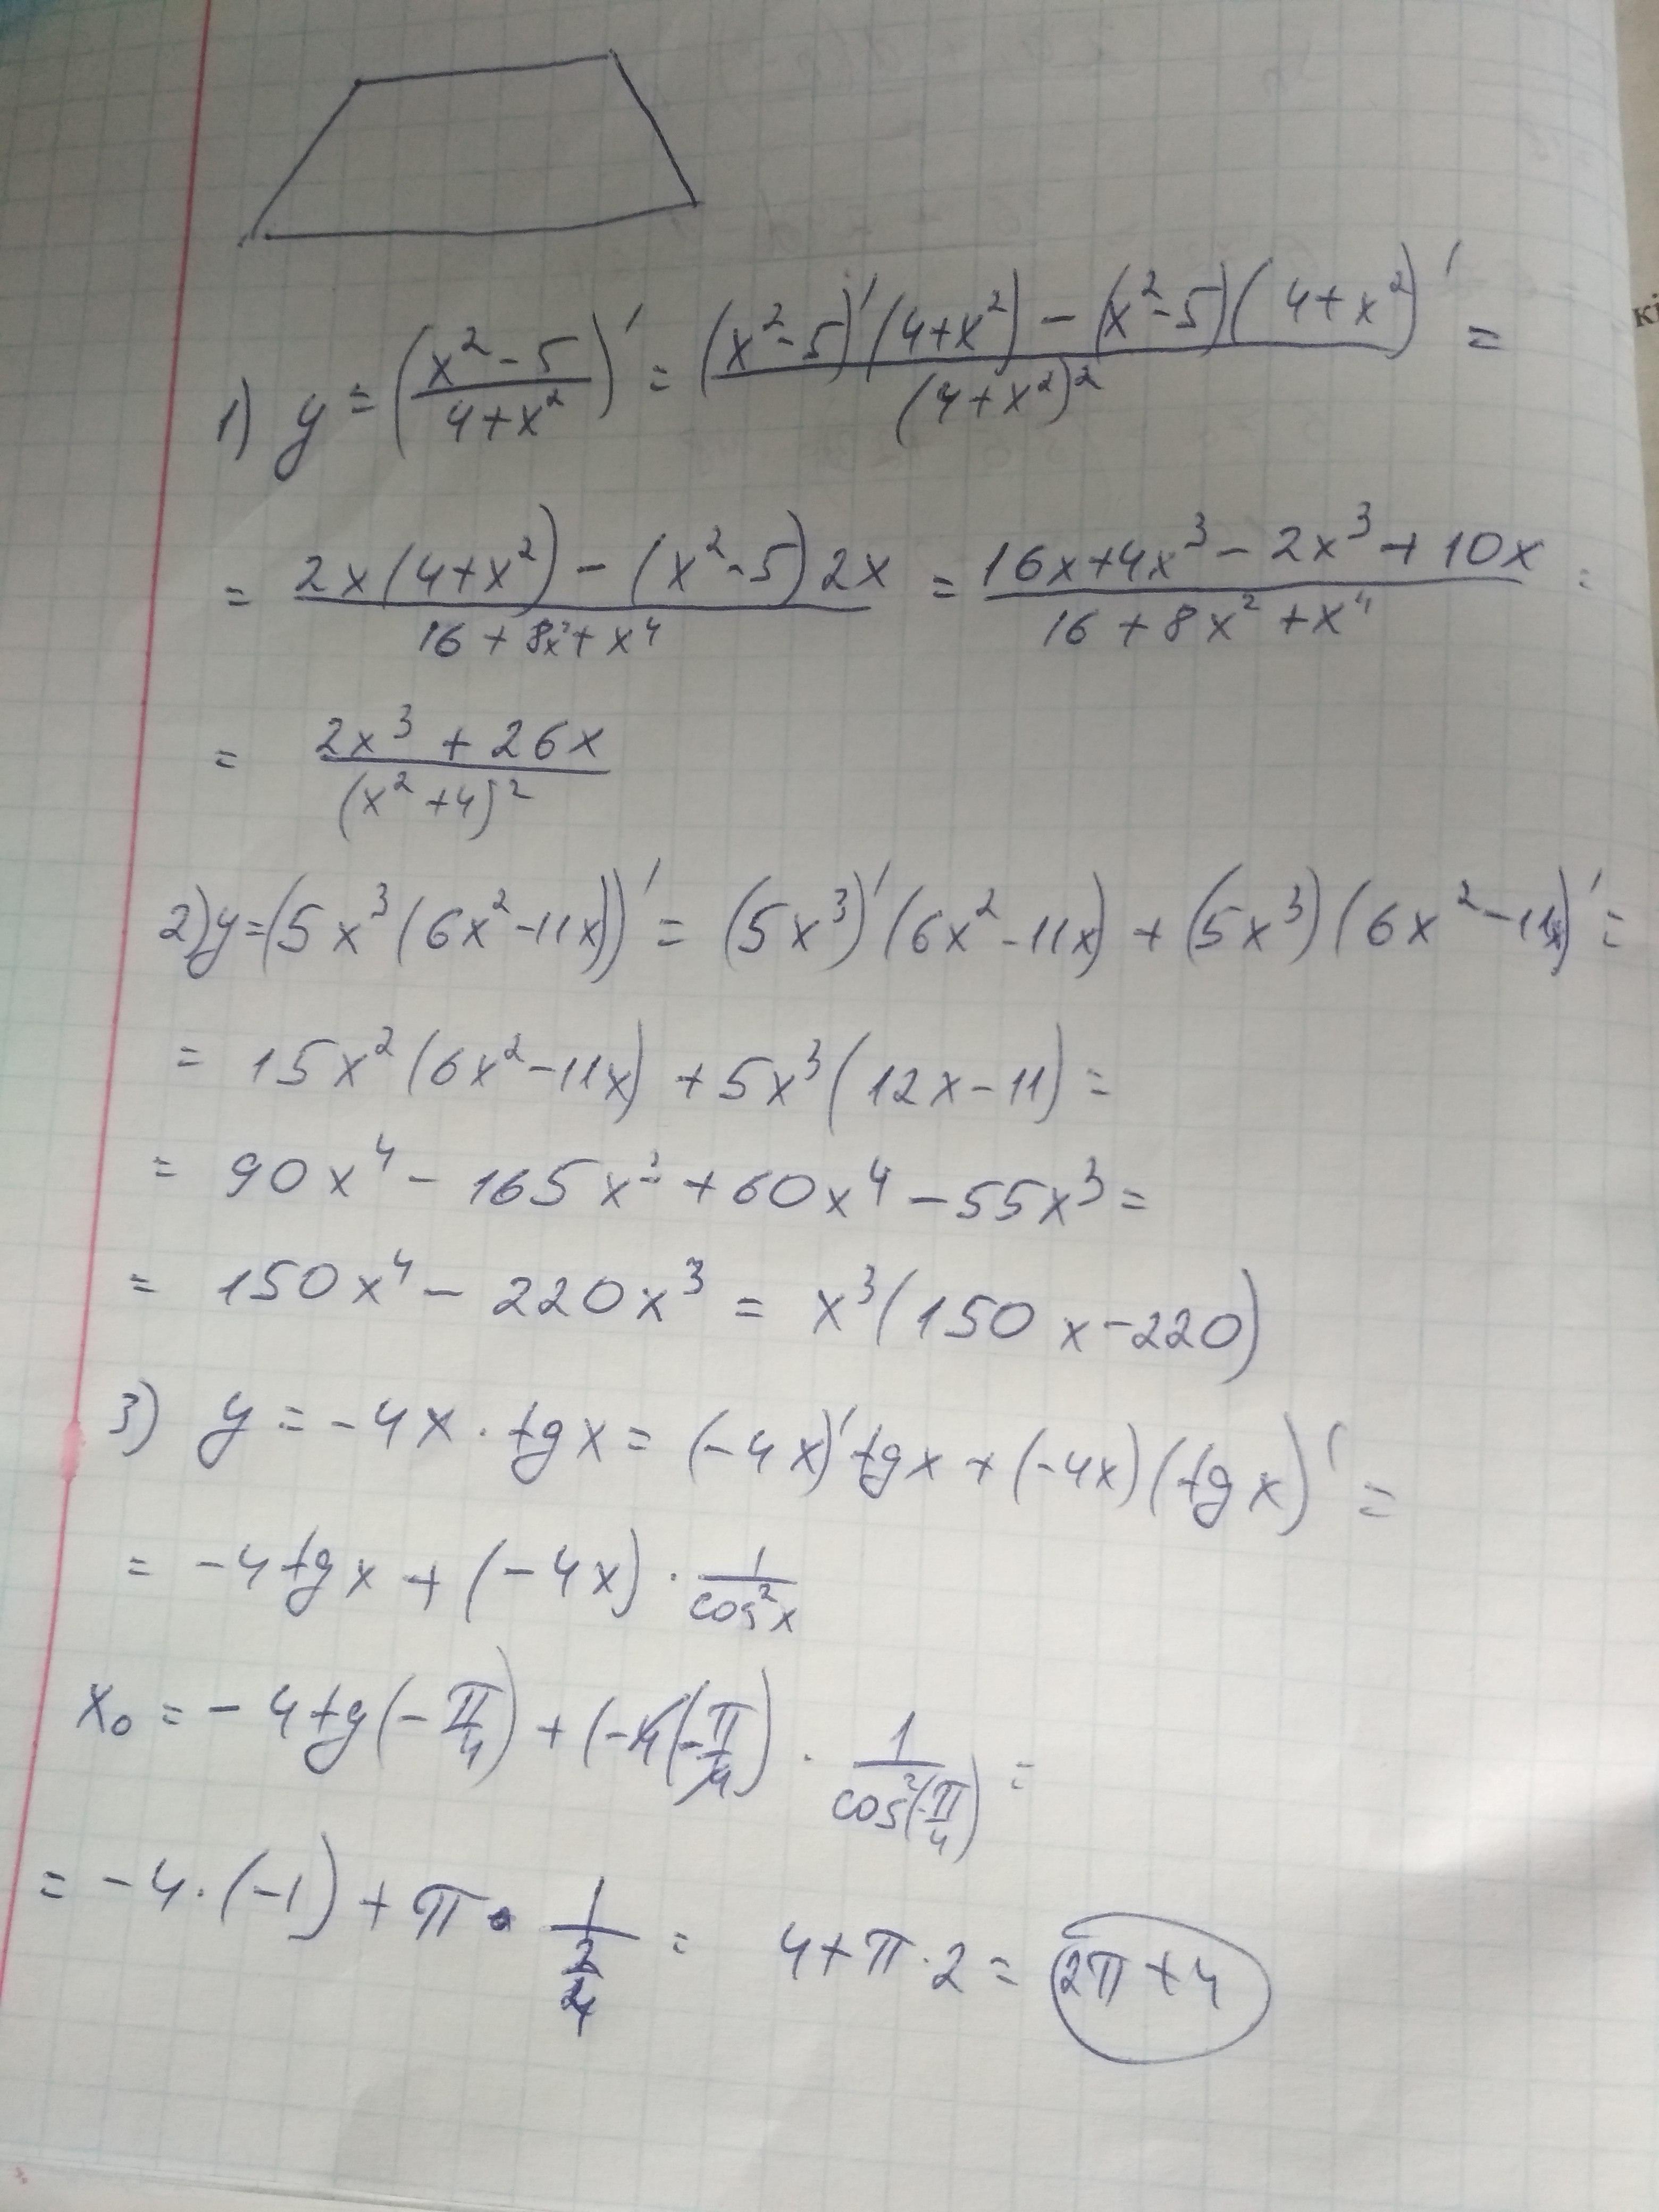 кі
1) y = (x² - 5 / 4 + x²)' = (x² - 5)'(4 + x²) - (x² - 5)(4 + x²)' / (4 + x²)² =
= 2x(4 + x²) - (x² - 5)2x / 16 + 8x² + x⁴ = 16x + 4x³ - 2x³ + 10x / 16 + 8x² + x⁴ =
= 2x³ + 26x / (x² + 4)²
2) y = (5x³(6x² - 11x))' = (5x³)'(6x² - 11x) + (5x³)(6x² - 11x)' =
= 15x²(6x² - 11x) + 5x³(12x - 11) =
= 90x⁴ - 165x³ + 60x⁴ - 55x³ =
= 150x⁴ - 220x³ = x³(150x - 220)
3) y = -4x · tgx = (-4x)'tgx + (-4x)(tgx)' =
= -4tgx + (-4x) · 1 / cos²x
x₀ = -4tg(-π/4) + (-4(-π/4) · 1 / cos²(-π/4) =
= -4 · (-1) + π · 1 / (2/4) = 4 + π · 2 = 2π + 4